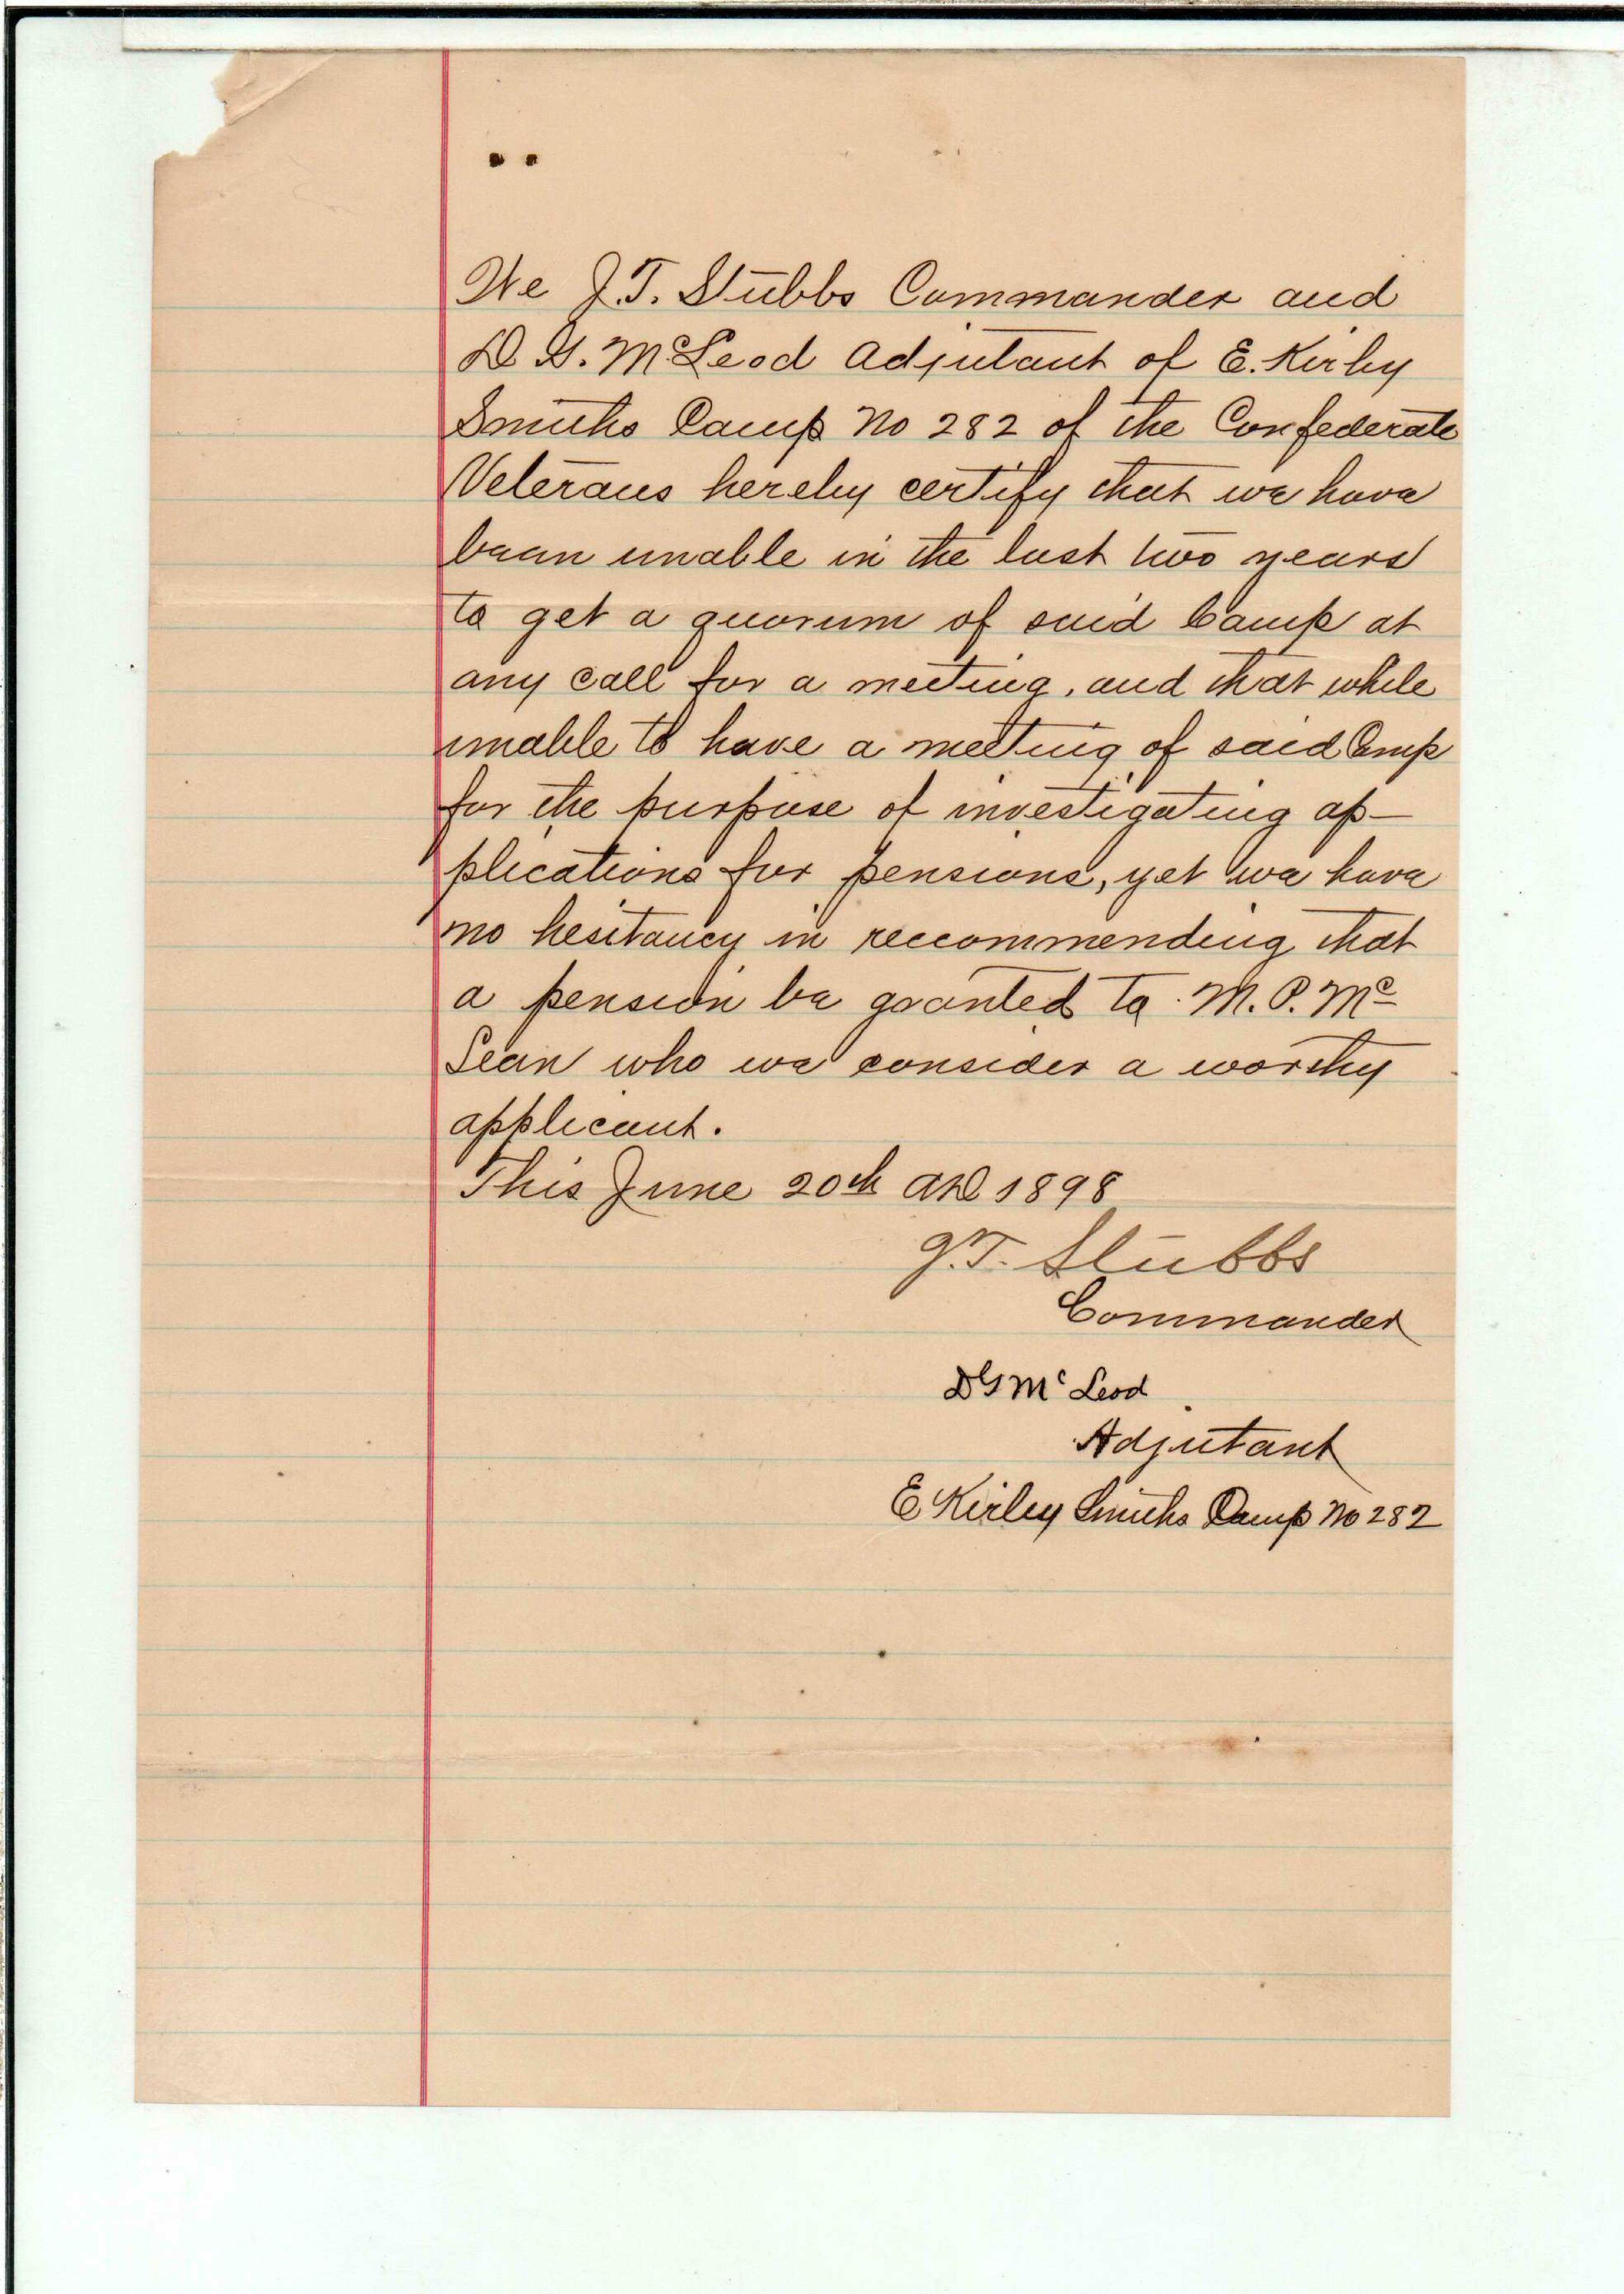 We J.T. Stubbs Commander and
D G. McLeod Adjutant of E. Kirby
Smiths Camp No 282 of the Confederate
Veterans hereby certify that we have
been unable in the last two years
to get a quorum of said Camp at
any call for a meeting, and that while
unable to have a meeting of said Camp
for the purpose of investigating ap-
plications for pensions, yet we have
no hesitancy in reccommending that
a pension be granted to M. P. Mc
Lean who we consider a worthy
applicant.
This June 20th AD 1898
J.T. Stubbs
Commander
D G Mc Leod
Adjutant
E Kirby Smiths Camp No 282